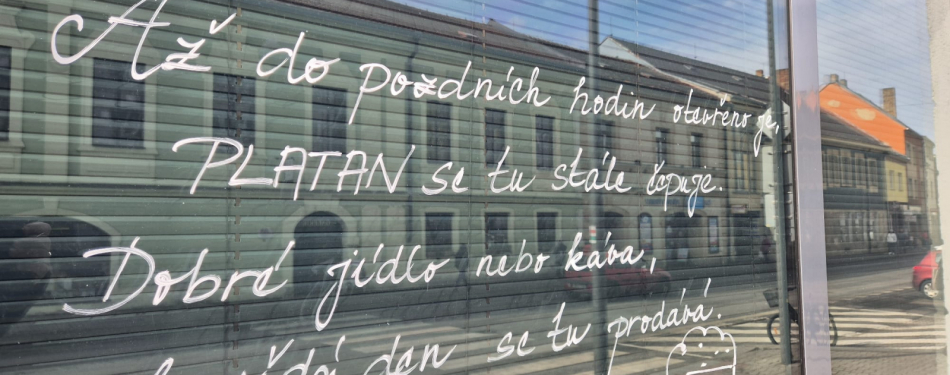 Až do pozdních hodin otevřeno je,
PLATAN se tu stále čepuje.
Dobré jídlo nebo káva,
den se tu prodává.